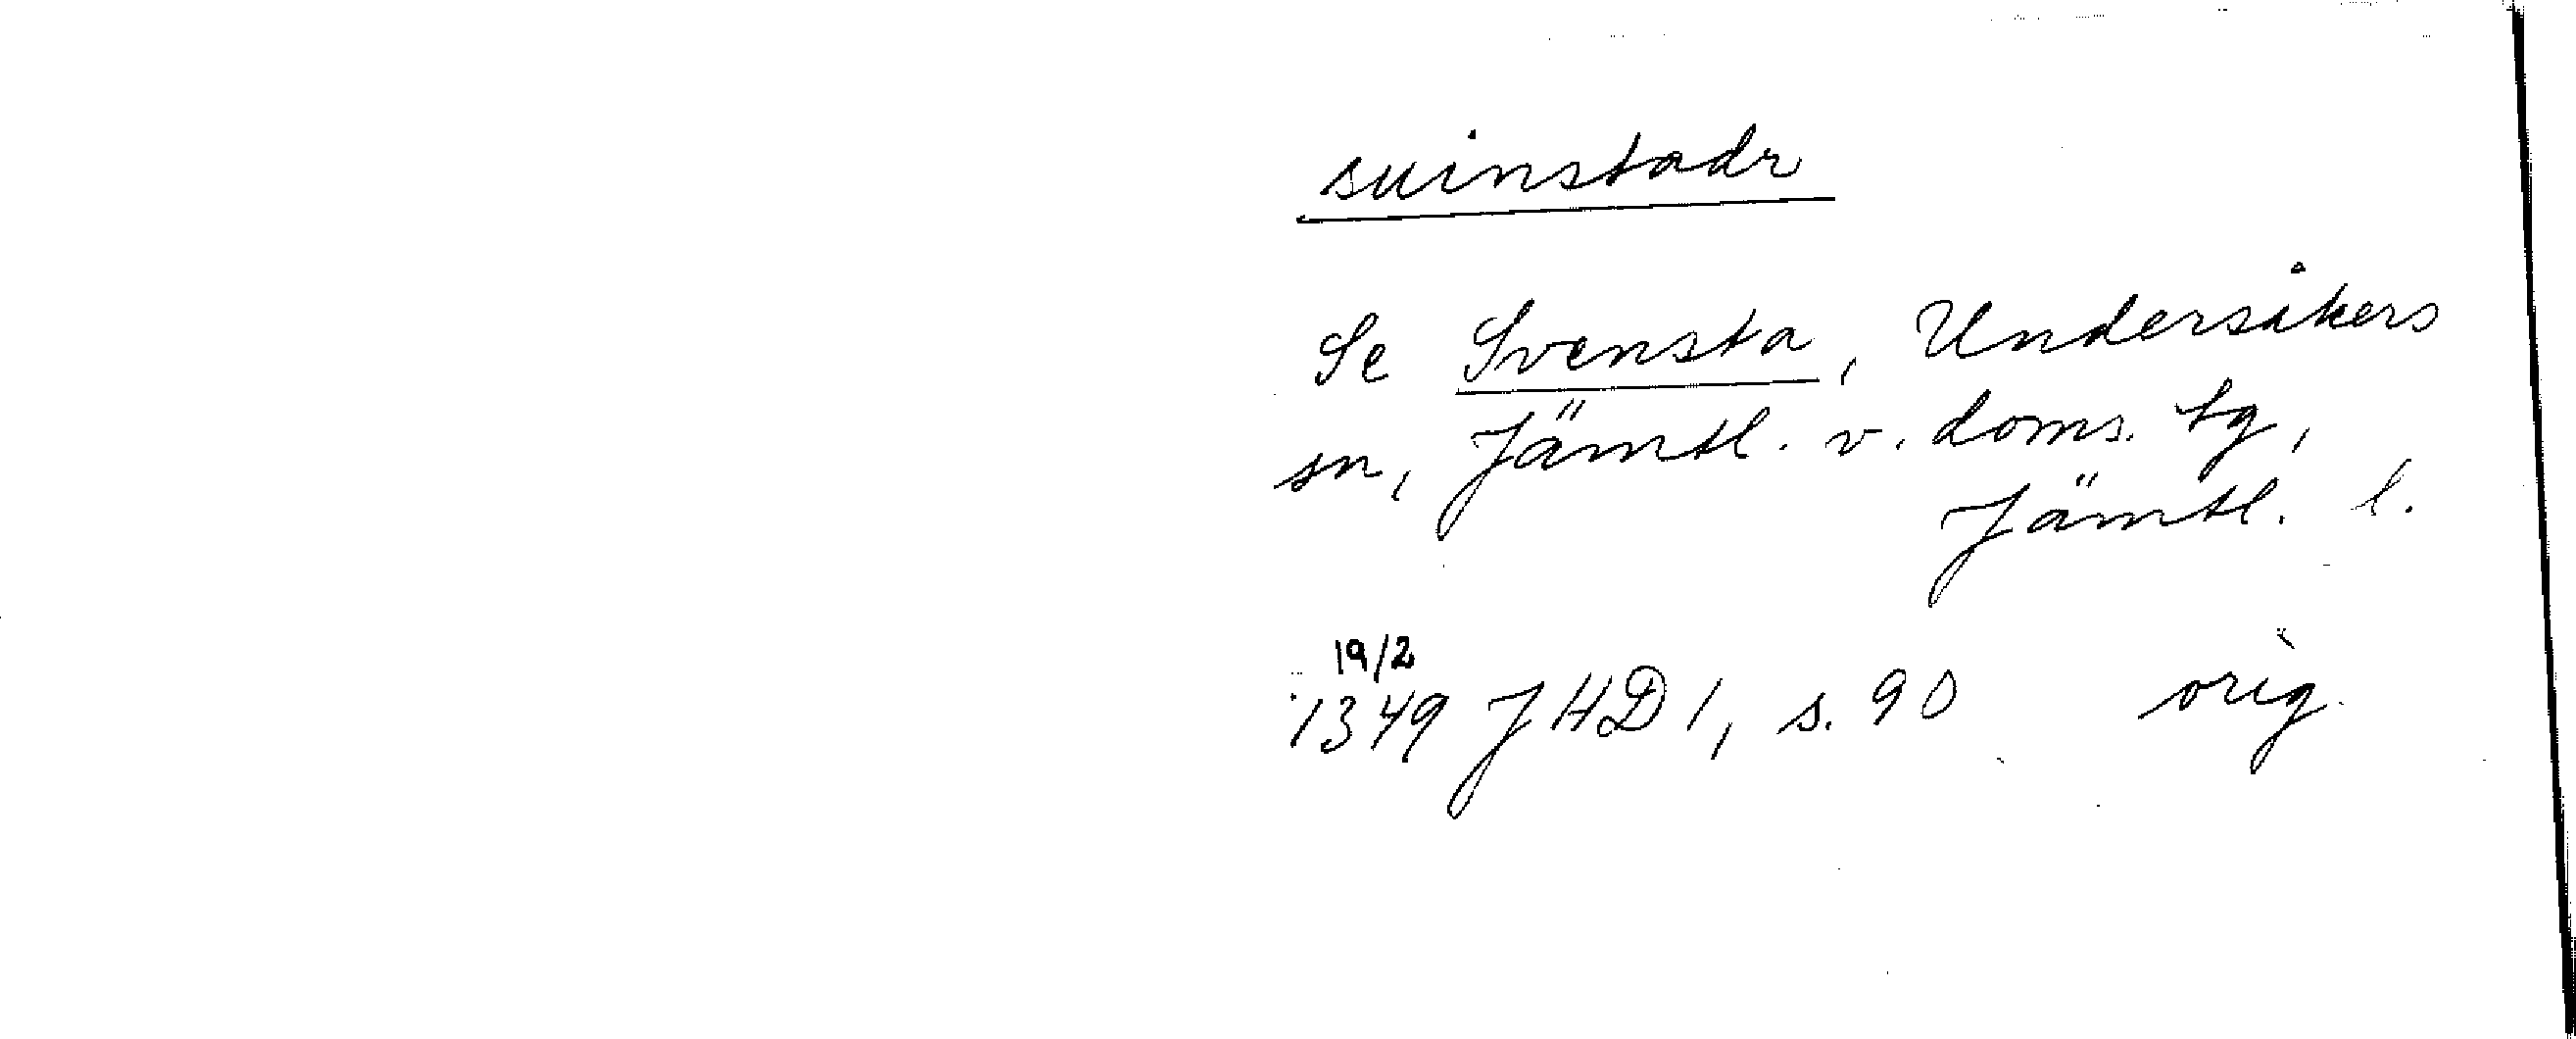 suinstadr
Se Svensta, Undersåkers
sn, Jämtl. v. doms. tg,
Jämtl. l.
19/2
1349 JHD 1, s. 90 orig.